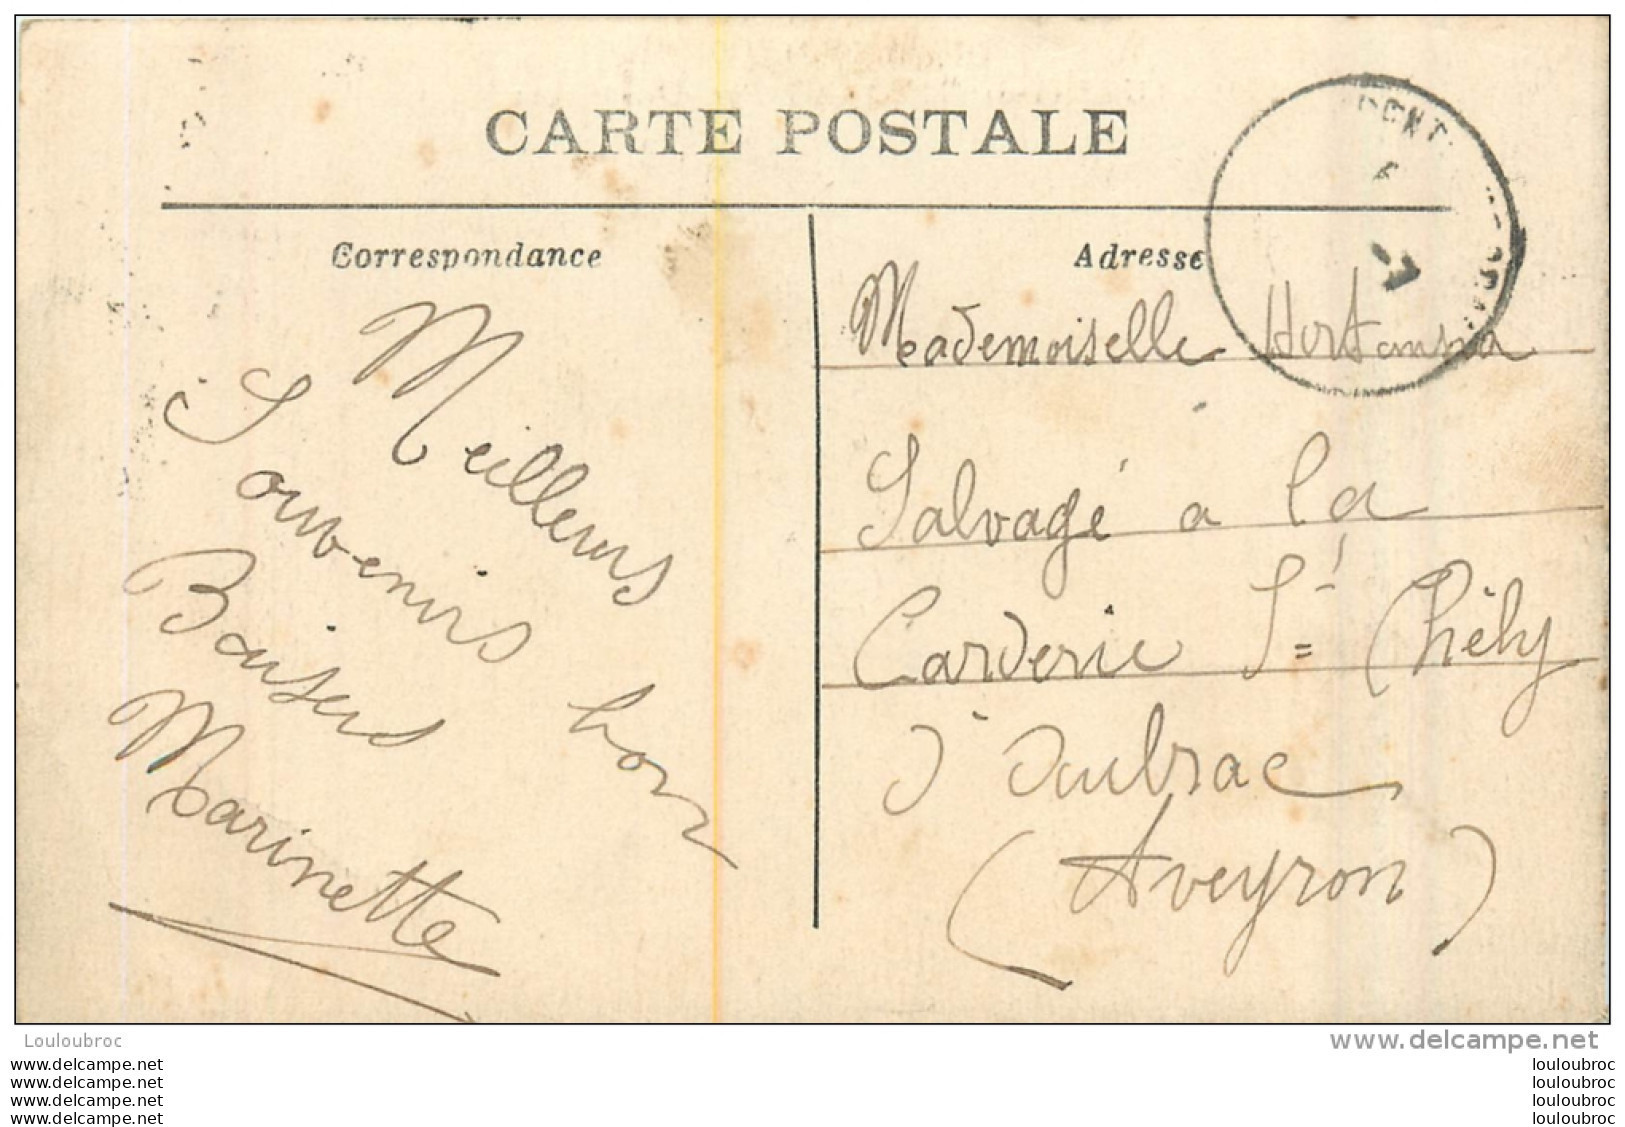 CARTE POSTALE
Correspondance
Meilleurs
Souvenirs bon
Baisers
Marinette
Adresse
Mademoiselle
Salvagé a la
Carderie St Chély
d'aubrac
(Aveyron)
PONT
Louloubroc
www.delcampe.net
www.delcampe.net
www.delcampe.net
www.delcampe.net
www.delcampe.net
louloubroc
louloubroc
louloubroc
louloubroc